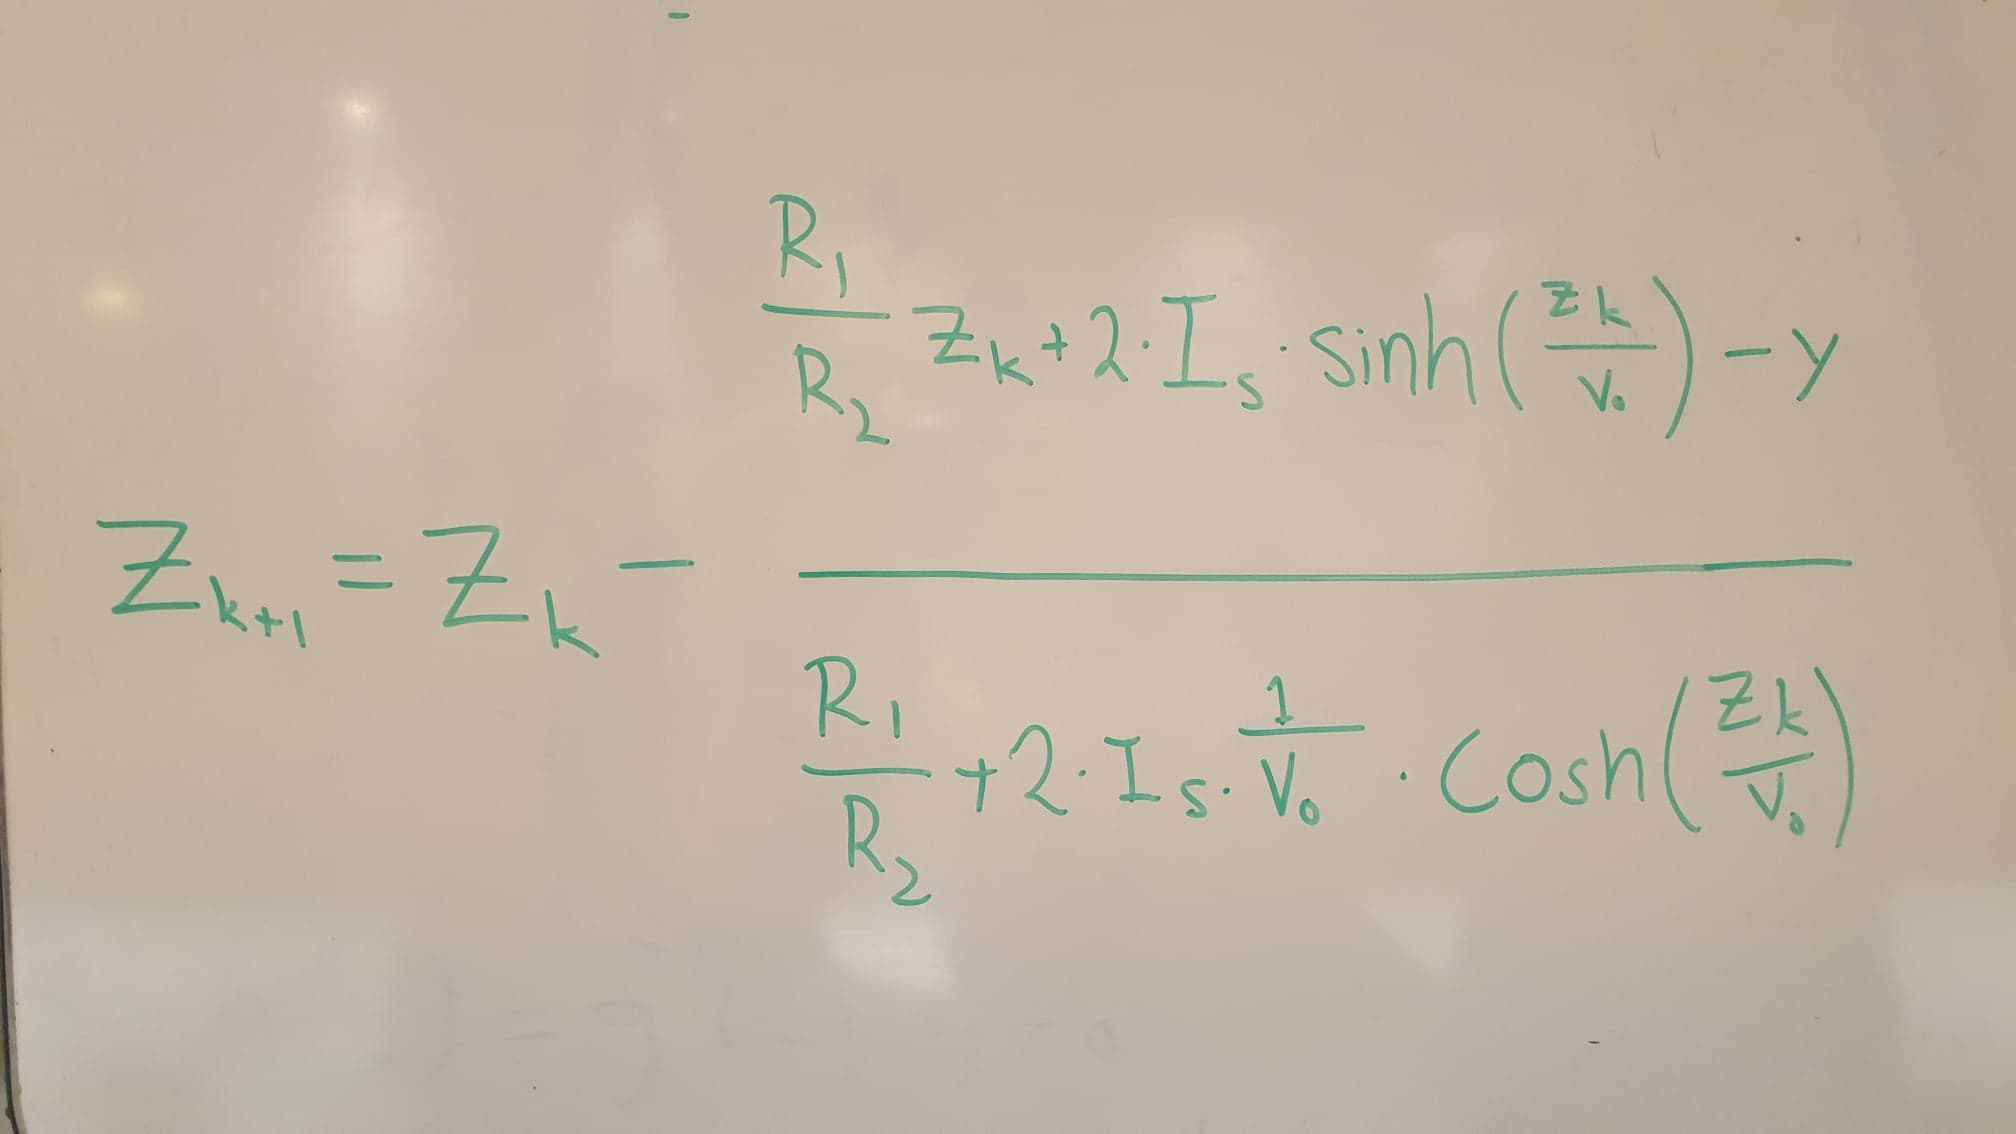 Z_{k+1} = Z_k - \frac{\frac{R_1}{R_2} Z_k + 2 \cdot I_s \cdot \sinh\left(\frac{Z_k}{V_0}\right) - y}{\frac{R_1}{R_2} + 2 \cdot I_s \cdot \frac{1}{V_0} \cdot \cosh\left(\frac{Z_k}{V_0}\right)}